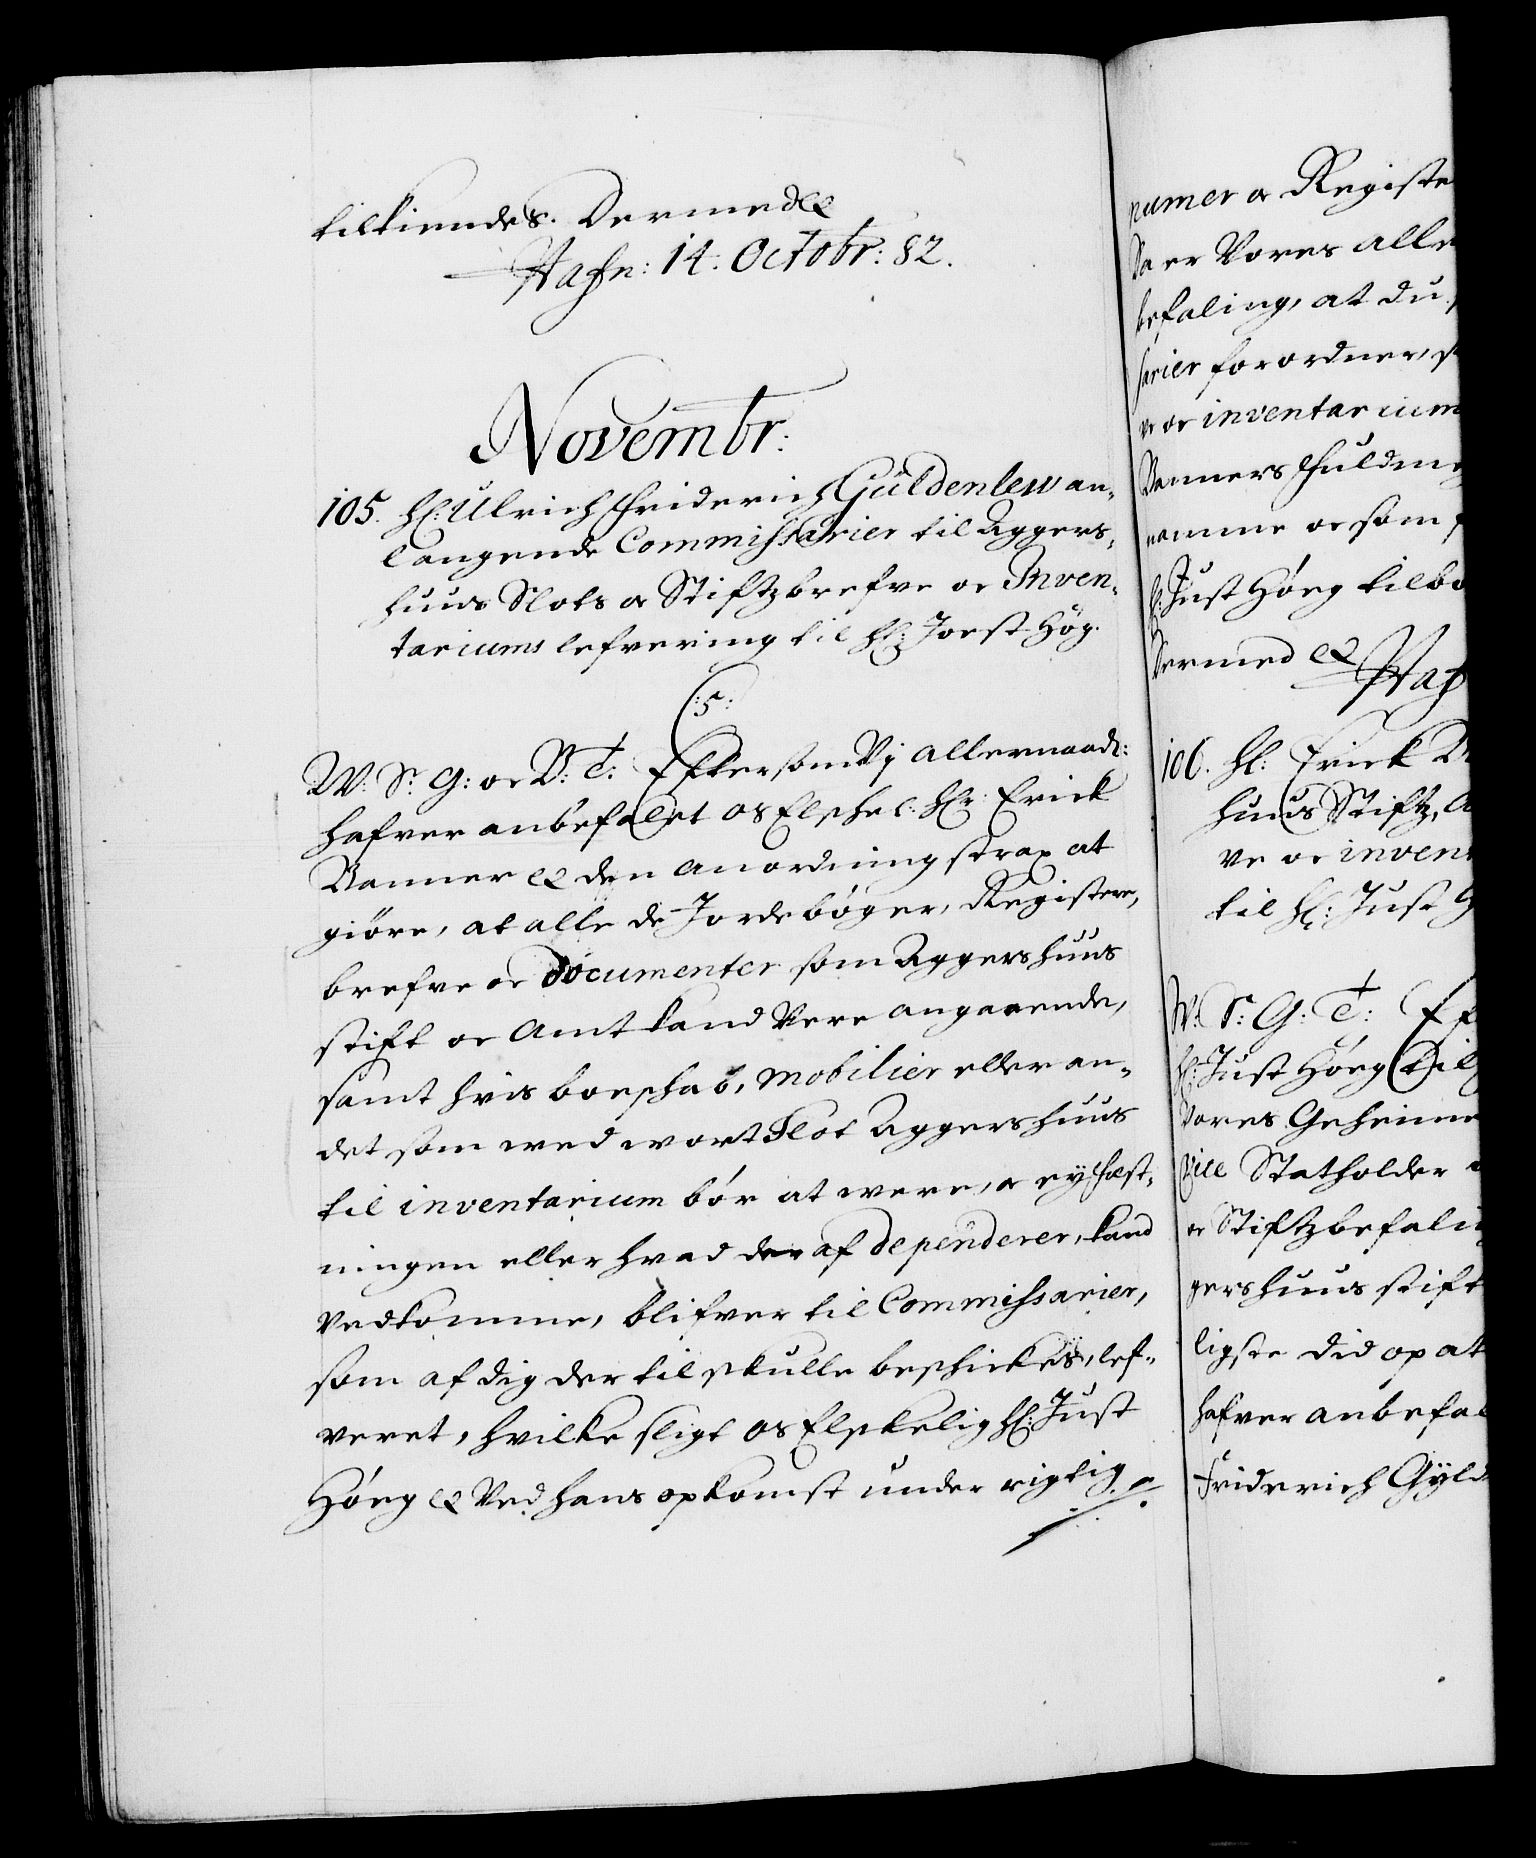 tilkiendes. Dermed etc
Hafn: 14. Octobr: 82.
Novembr:
105. Hl: Ulrich Friderich Güldenlew an-
langende Commissarier til Aggers-
huus Slots oc Stiftzbrefve oc Inven-
tariums lefvering til Hl: Joest Hög.
(:5:
W: S: G: oc V: T: Eftersom Vj allernaad:
hafver anbefalet os Elskel: Hr: Erick
Banner etc den anordning strax at
giöre, at alle de Jordebøger, Registere,
brefve oc documenter som Aggershuus
stift oc Amt kand Vere angaaende,
samt hvis boeschab, mobilier eller an-
det som wed wort Slot Aggershuus
til inventarium bör at were, oc ey fæst-
ningen eller hvad der af dependerer, kand
vedkomme, blifver til Commissarier,
som af dig der til skulle beschickes, lef-
veret, hvilke sligt os Elskelig Hl: Just
Höeg etc Ved hans opkomst under rigtig
numer oc Registe
Da er Vores alle
befaling, at du
sarier forordner,
ve oc inventarium
Banners fuldme
namme oc som
Hl: Just Høeg tilbø
Dermed etc Haf
106. Hl: Erick B
huus Stiftz, A
ve oc invent
til Hl: Just H
W: S: G: T: Ef
Hl: Just Høeg til
Vores Geheime
Vice Statholder
oc Stiftzbefali
gershuus stift
ligste did op at
hafver anbefal
Friderich Gyld